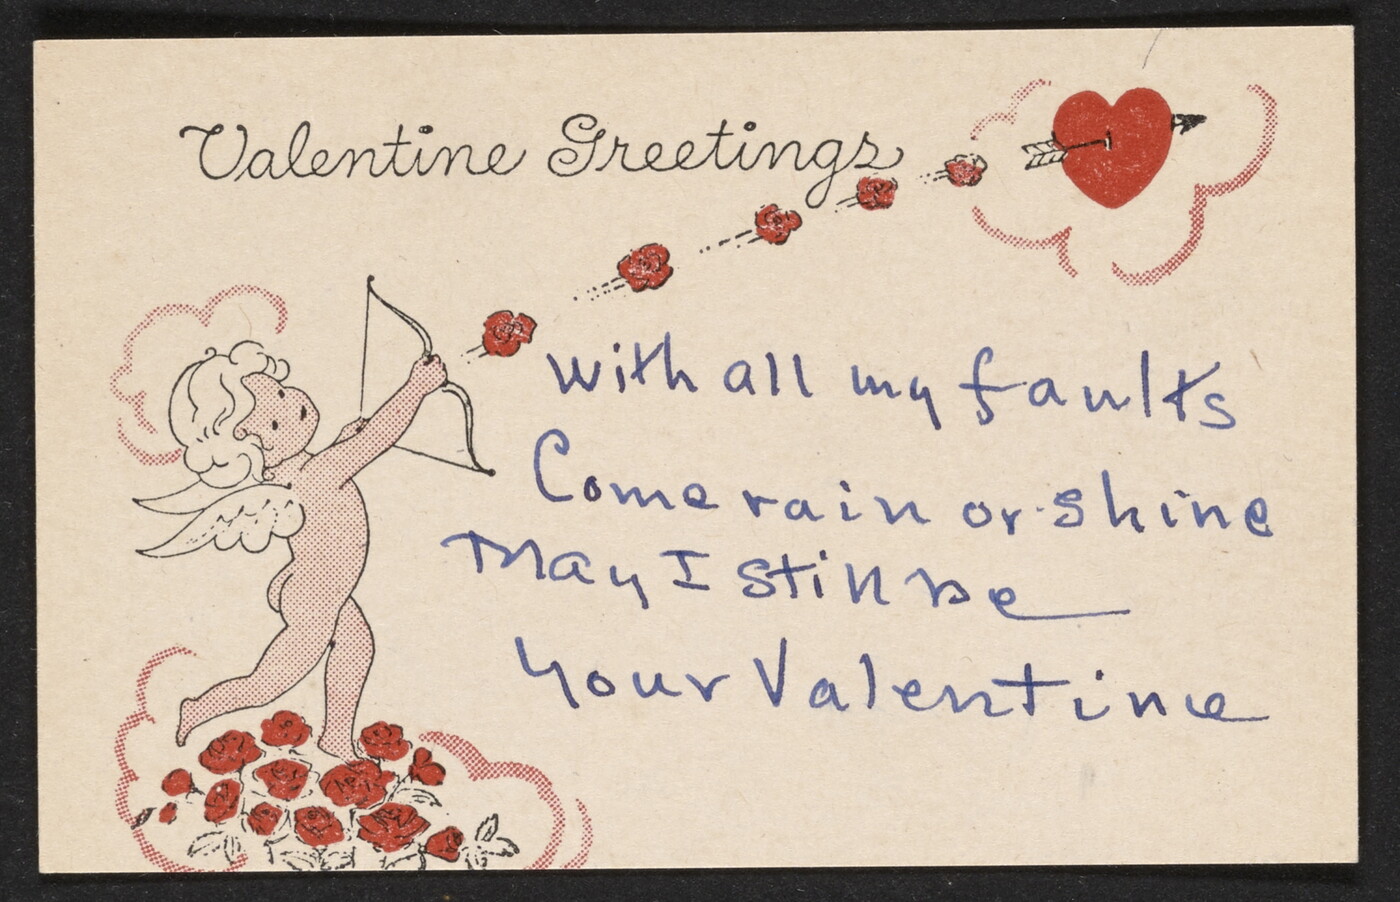 Valentine Greetings
With all my faults
Come rain or shine
May I still be
Your Valentine